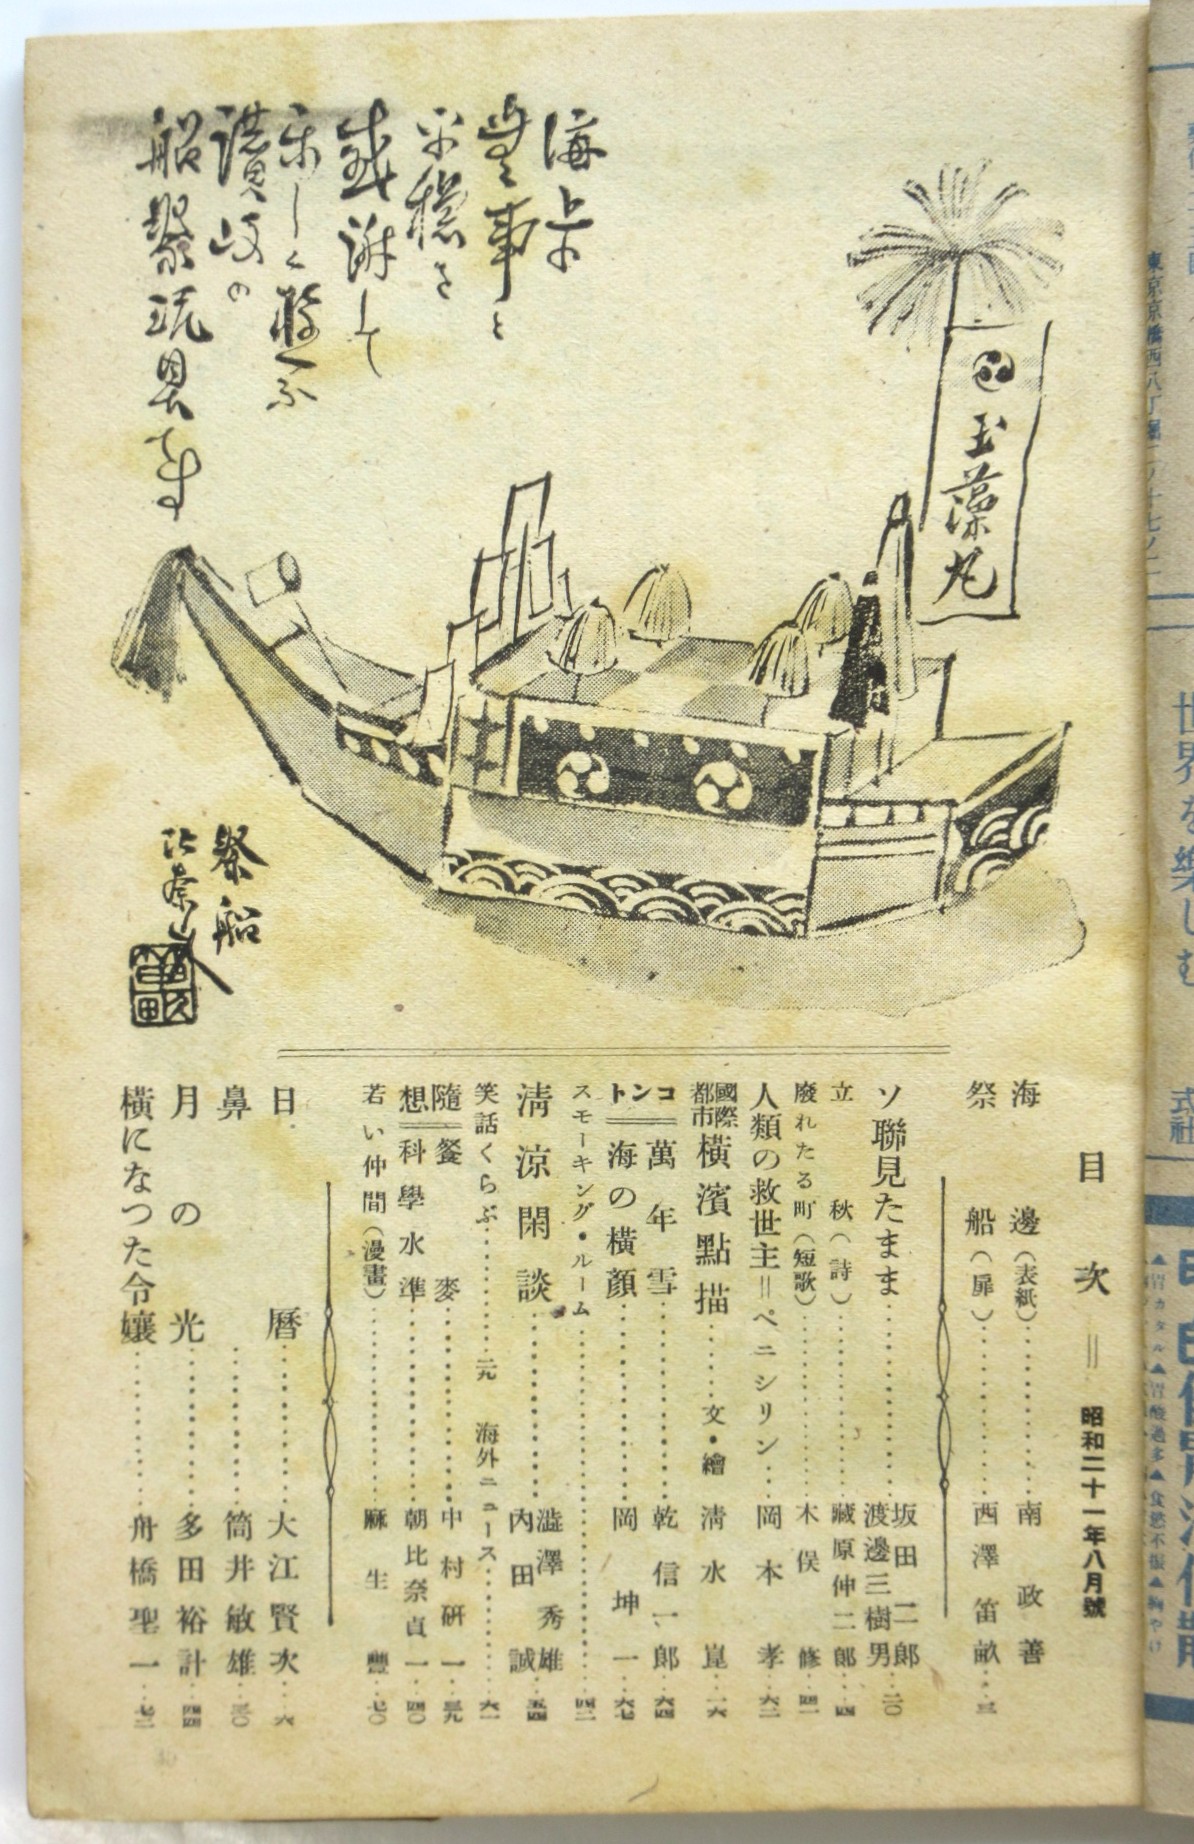 海上
豊事と
平穏を
感謝して
楽しく遊ぶ
讃岐の
船祭玩具なり
玉藻丸
祭船
目次＝昭和二十一年八月號
海邊（表紙）…………南政善
祭船（扉）…………西澤笛畝…三
ソ聯見たまま…………坂田二郎 渡邊三樹男…二〇
立秋（詩）…………藏原伸二郎…四
廢れたる町（短歌）…………木俣修…四一
人類の救世主＝ペニシリン…岡本孝…六二
國際都市 横濱點描……文・繪 清水崑…一六
コント＝萬年雪…………乾信一郎…六四
海の横顔…………岡坤一…六七
スモーキング・ルーム…………四二
清涼閑談…………澁澤秀雄 內田誠…五四
笑話くらぶ……元 海外ニュース……六一
隨想＝餐麥…………中村研一…三九
科學水準…………朝比奈貞一…四〇
若い仲間（漫畫）…………麻生豐…七〇
日曆…………大江賢次…六
鼻…………筒井敏雄…三〇
月の光…………多田裕計…四四
橫になつた令孃…………舟橋聖一…七二
東京京橋西八丁堀二ノ十七ノ一
世界を樂しむ
式社
▲胃カタル▲胃酸過多▲食慾不振▲胸やけ